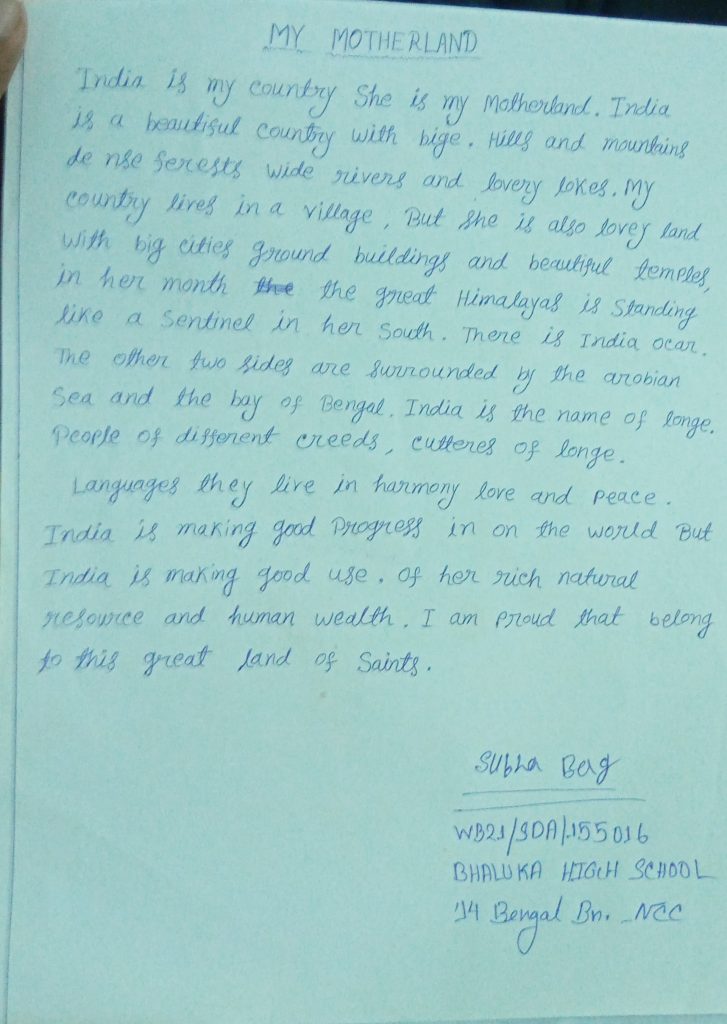 MY MOTHERLAND
India is my country She is my Motherland. India
is a beautiful country with bige. Hills and mountains
de nse ferests wide rivers and lovery lokes. My
country lives in a village, But she is also lovey land
with big cities ground buildings and beautiful temples,
in her month the the great Himalayas is Standing
like a Sentinel in her South. There is India ocar.
The other two sides are surrounded by the arobian
Sea and the bay of Bengal. India is the name of longe.
People of different creeds, cutteres of longe.
Languages they live in harmony love and peace.
India is making good Progress in on the world But
India is making good use. of her rich natural
resource and human wealth. I am proud that belong
to this great land of Saints.
Subha Bag
WB21/SDA/155016
BHALUKA HIGH SCHOOL
'14 Bengal Bn. NCC